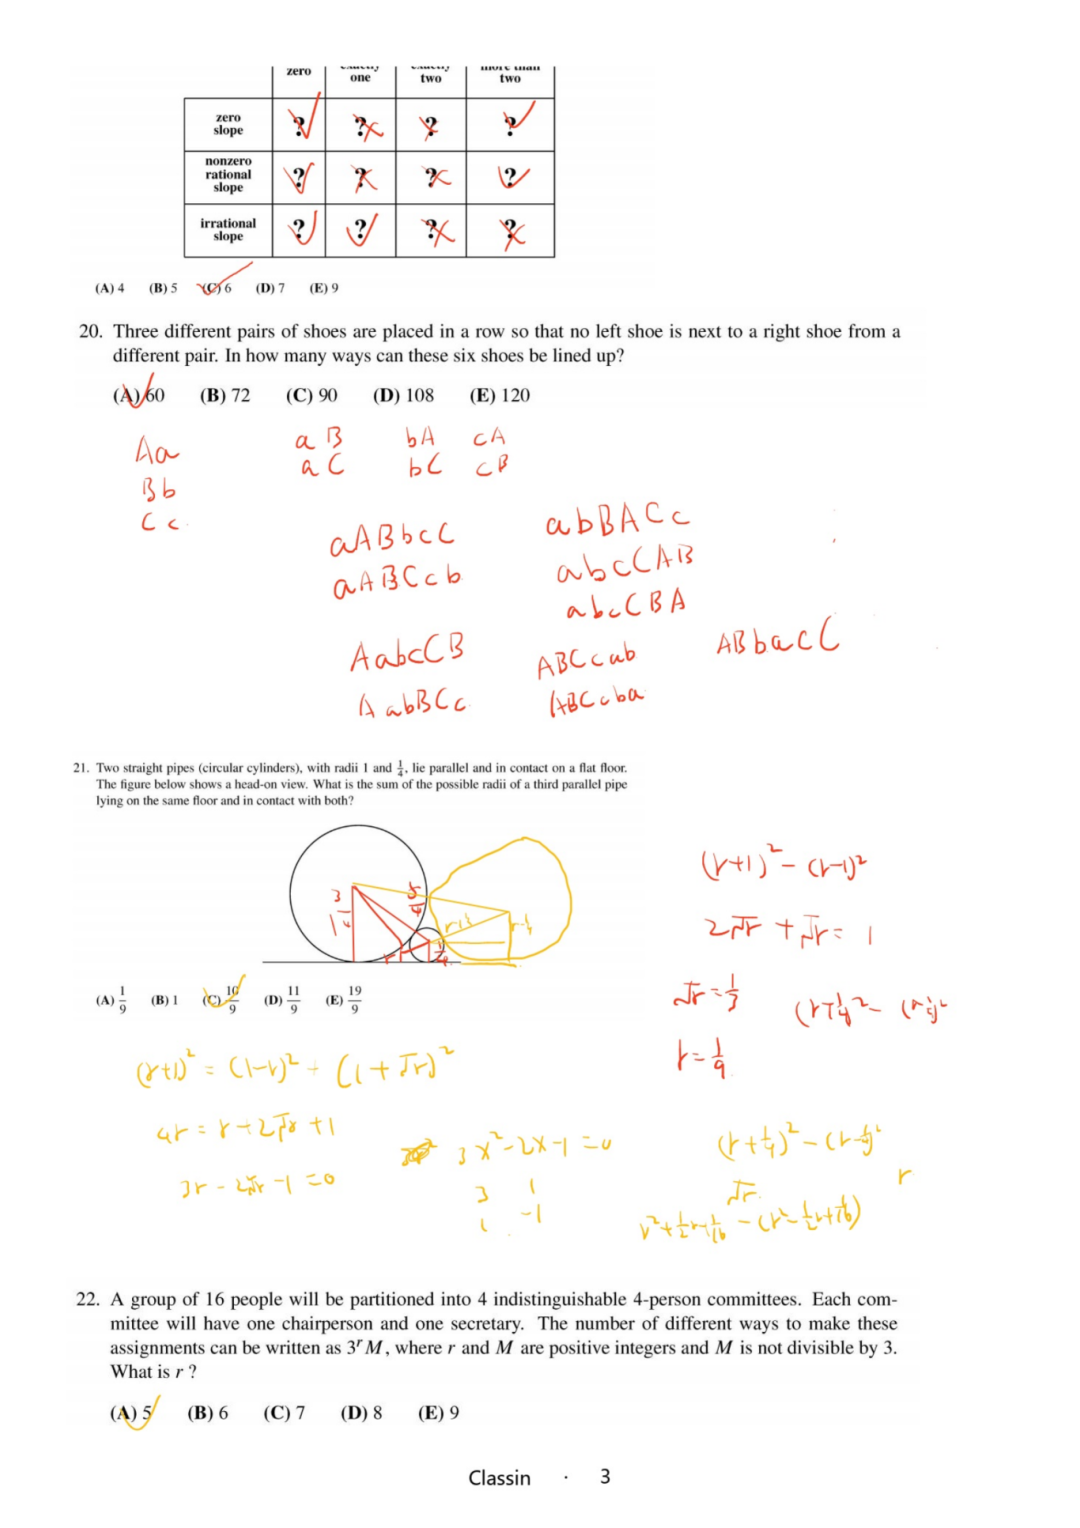 zero one two two
zero slope ? ? ? ?
nonzero rational slope ? ? ? ?
irrational slope ? ? ? ?
(A) 4 (B) 5 (C) 6 (D) 7 (E) 9
20. Three different pairs of shoes are placed in a row so that no left shoe is next to a right shoe from a
different pair. In how many ways can these six shoes be lined up?
(A) 60 (B) 72 (C) 90 (D) 108 (E) 120
Aa
Bb
Cc
aB bA cA
aC bC cB
aABbcC
aABCcb
abBACc
abcCAB
abcCBA
AabcCB
AabBCc
ABCcab
ABCcba
ABbacC
21. Two straight pipes (circular cylinders), with radii 1 and 1/4, lie parallel and in contact on a flat floor.
The figure below shows a head-on view. What is the sum of the possible radii of a third parallel pipe
lying on the same floor and in contact with both?
(r+1)² - (r-1)²
2√r + √r = 1
√r = 1/3
r = 1/9
(A) 1/9 (B) 1 (C) 10/9 (D) 11/9 (E) 19/9
(r+1)² = (1-r)² + (1+√r)²
4r = r + 2√r + 1
3r - 2√r - 1 = 0
3x² - 2x - 1 = 0
3 1
1 -1
(r+1/4)² - (r-1/4)²
√r
r
r² + 1/2r + 1/16 - (r² - 1/2r + 1/16)
22. A group of 16 people will be partitioned into 4 indistinguishable 4-person committees. Each com-
mittee will have one chairperson and one secretary. The number of different ways to make these
assignments can be written as 3ʳM, where r and M are positive integers and M is not divisible by 3.
What is r ?
(A) 5 (B) 6 (C) 7 (D) 8 (E) 9
Classin · 3